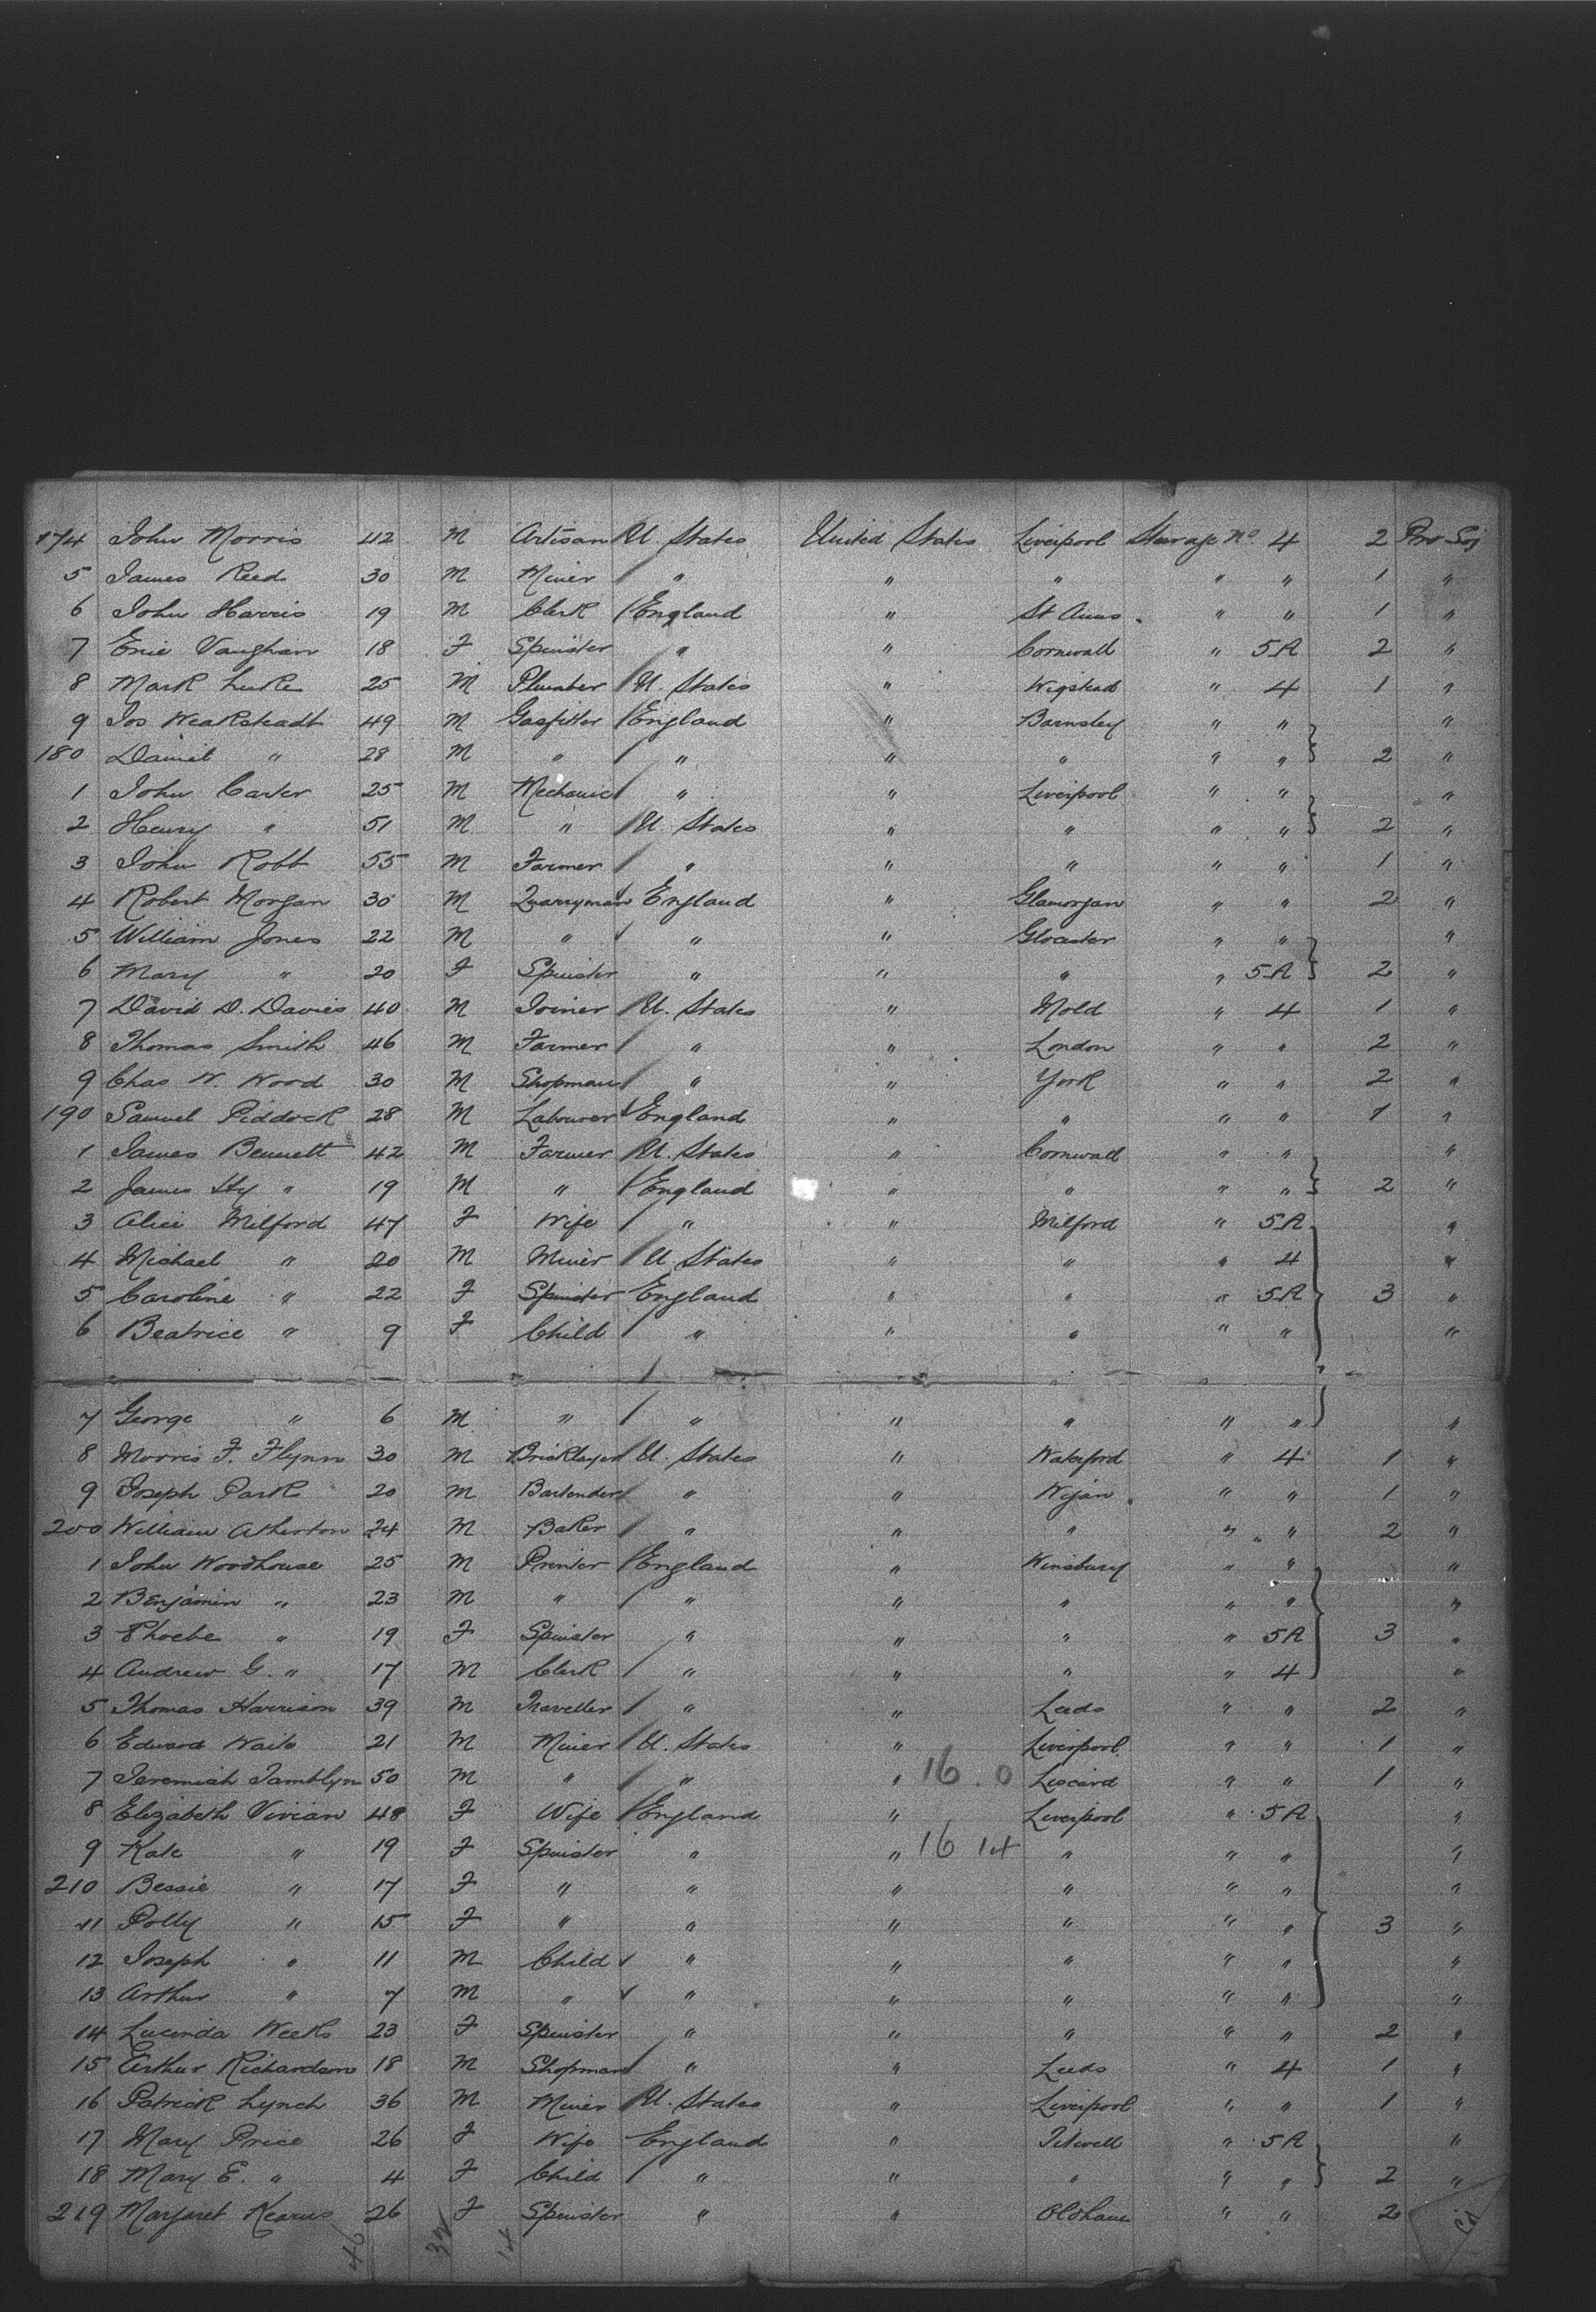 174 John Morris 42 M Artisan U. States United States Liverpool Steerage No. 4 2 Pro Soj
5 James Reed 30 M Miner " " " " " 1 "
6 John Harris 19 M Clerk England " St Anns " " 1 "
7 Enie Vaughan 18 F Spinster " " Cornwall " 5A 2 "
8 Mark Luke 25 M Plumber U. States " " 4 1 "
9 Jos Weaksteadt 49 M Gasfitter England " Barnsley " " "
180 Daniel " 28 M " " " " " " 2 "
1 John Carter 25 M Mechanic " " Liverpool " " "
2 Henry " 51 M " U. States " " " " 2 "
3 John Robb 55 M Farmer " " " " " 1 "
4 Robert Morgan 30 M Quarryman England " Glamorgan " " 2 "
5 William Jones 22 M " " " Gloaster " " "
6 Mary " 20 F Spinster " " " " 5A 2 "
7 David D. Davies 40 M Joiner U. States " Mold " 4 1 "
8 Thomas Smith 46 M Farmer " " London " " 2 "
9 Chas W. Wood 30 M Shopman " " York " " 2 "
190 Samuel Piddock 28 M Labourer England " " " " 1 "
1 James Bennett 42 M Farmer U. States " Cornwall " " "
2 James Hy " 19 M " England " " " " 2 "
3 Alice Milford 47 F Wife " " Milford " 5A "
4 Michael " 20 M Miner U. States " " " 4 "
5 Caroline " 22 F Spinster England " " " 5A 3 "
6 Beatrice " 9 F Child " " " " " "
7 George " 6 M " " " " " " "
8 Morris F. Flynn 30 M Bricklayer U. States " Waterford " 4 1 "
9 Joseph Park 20 M Bartender " " Wigan " " 1 "
200 William Atherton 24 M Baker " " " " " 2 "
1 John Woodhouse 25 M Printer England " Winsbury " " "
2 Benjamin " 23 M " " " " " " "
3 Phoebe " 19 F Spinster " " " " 5A 3 "
4 Andrew G. " 17 M Clerk " " " " 4 "
5 Thomas Harrison 39 M Traveller " " Leeds " " 2 "
6 Edward Waite 21 M Miner U. States " Liverpool " " 1 "
7 Jeremiah Tamblyn 50 M " " " 16.0 Liscard " " 1 "
8 Elizabeth Vivian 48 F Wife England " Liverpool " 5A "
9 Kate " 19 F Spinster " " 16 14 " " " "
210 Bessie " 17 F " " " " " " "
11 Polly " 15 F " " " " " " 3 "
12 Joseph " 11 M Child " " " " " "
13 Arthur " 7 M " " " " " " "
14 Lucinda Weeks 23 F Spinster " " " " " 2 "
15 Arthur Richardson 18 M Shopman " " Leeds " 4 1 "
16 Patrick Lynch 36 M Miner U. States " Liverpool " " 1 "
17 Mary Price 26 F Wife England " " 5A "
18 Mary E. " 4 F Child " " " " " 2 "
219 Margaret Kearns 26 F Spinster " " Oldham " " 2
46 32 14